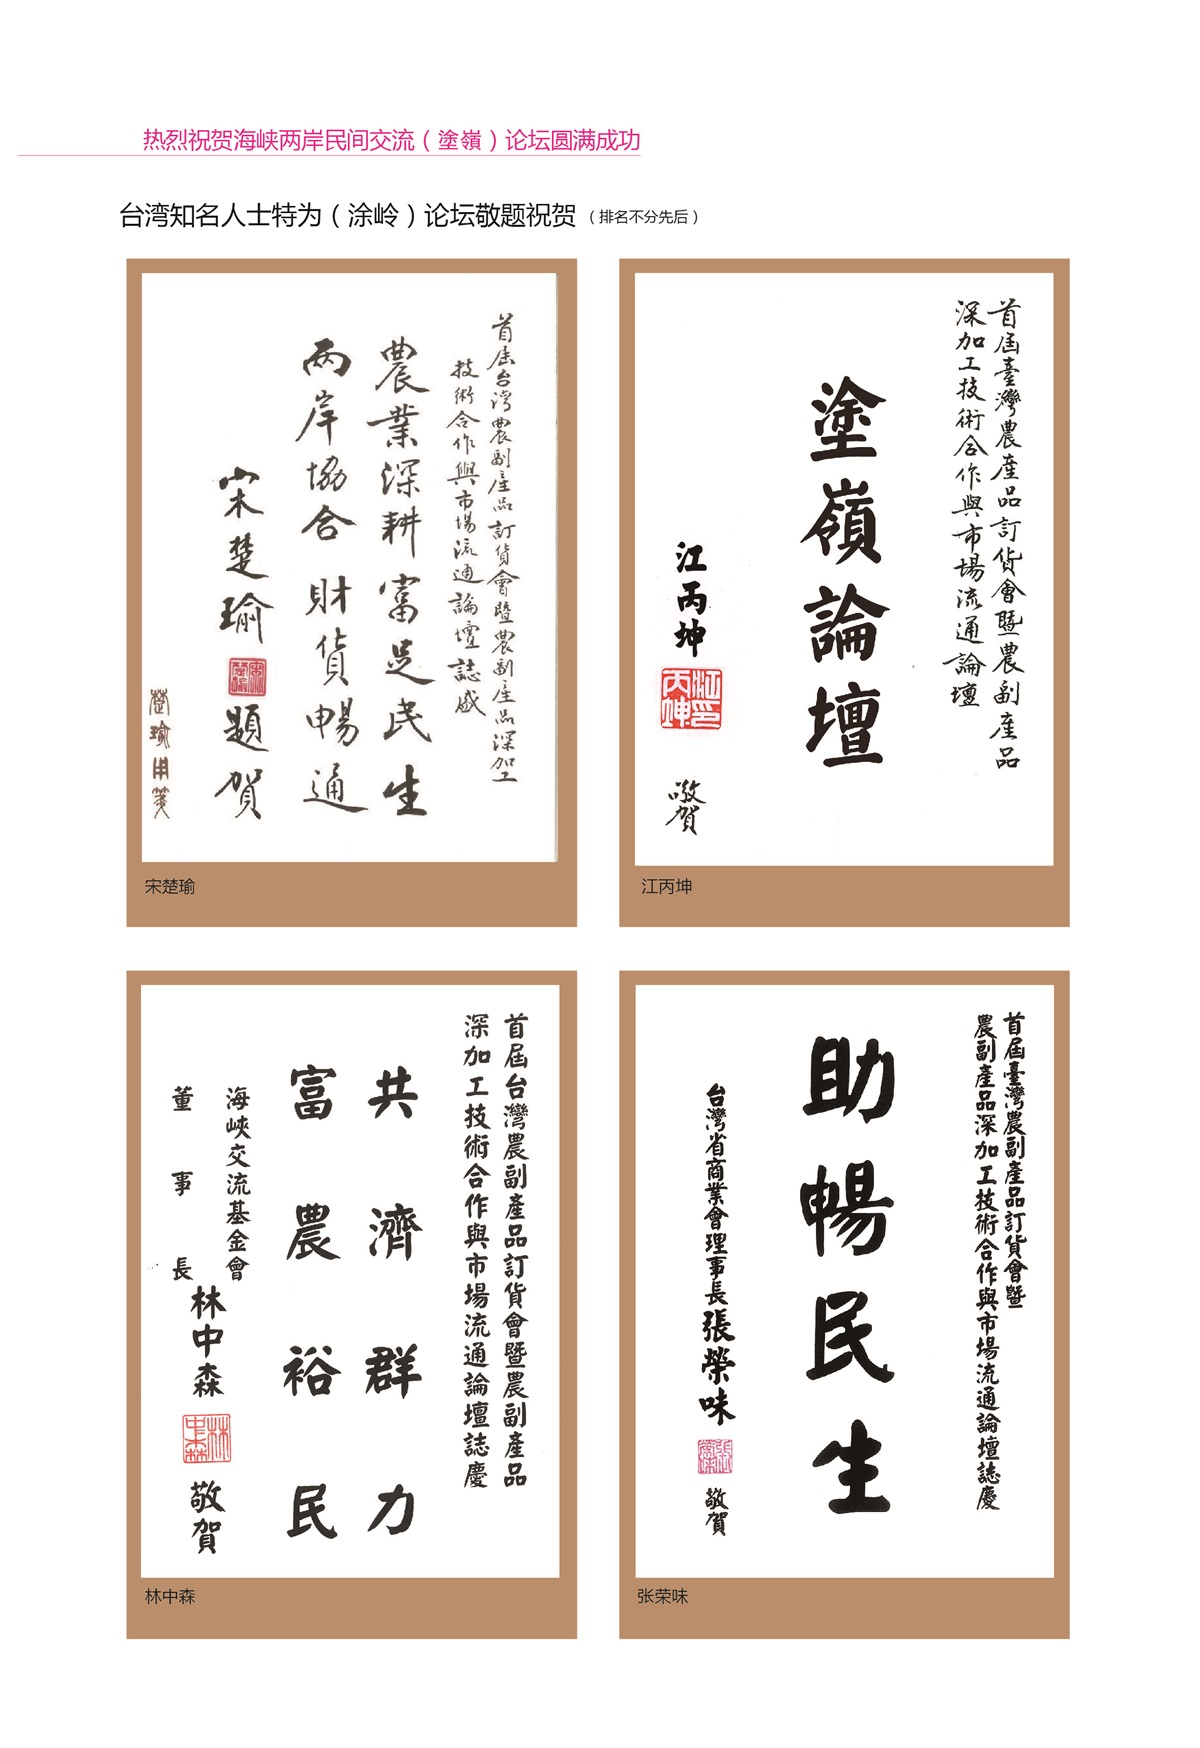 热烈祝贺海峡两岸民间交流（塗嶺）论坛圆满成功
台湾知名人士特为（涂岭）论坛敬题祝贺（排名不分先后）
首届台湾農副産品訂貨會暨農副産品深加工
技術合作與市場流通論壇誌盛
農業深耕富足民生
兩岸協合財貨暢通
宋楚瑜
題賀
楚瑜用箋
宋楚瑜
首屆臺灣農產品訂貨會暨農副產品
深加工技術合作與市場流通論壇
塗嶺論壇
江丙坤
江丙坤印
敬賀
江丙坤
首屆台灣農副產品訂貨會暨農副產品
深加工技術合作與市場流通論壇誌慶
共濟群力
富農裕民
海峽交流基金會
董事長
林中森
林中森
敬賀
林中森
首屆臺灣農副產品訂貨會暨
農副產品深加工技術合作與市場流通論壇誌慶
助暢民生
台灣省商業會理事長張榮味
張榮味
敬賀
张荣味